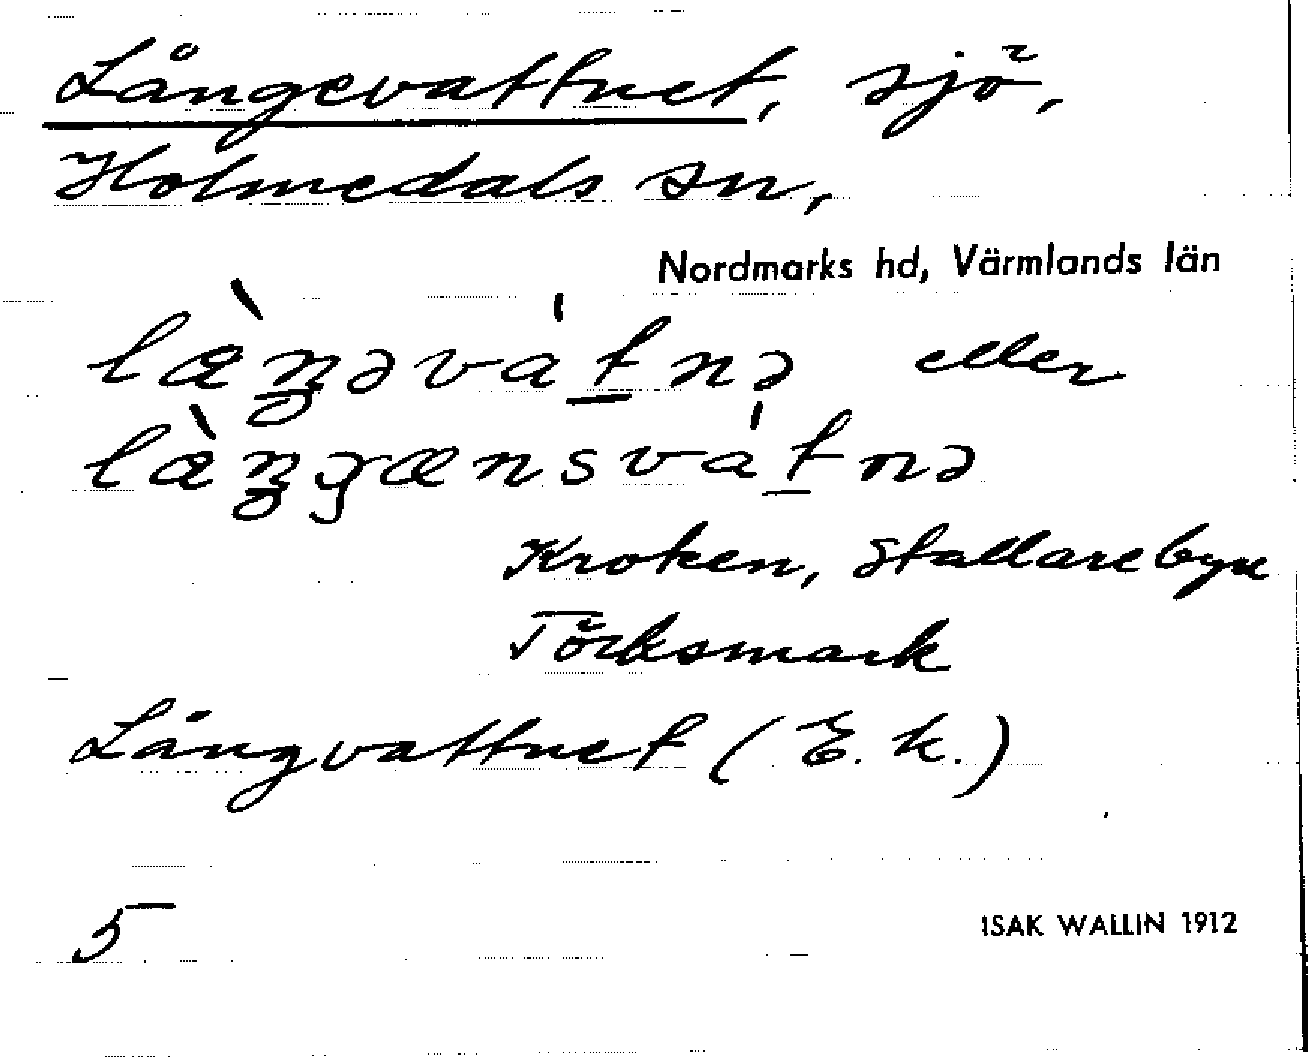 Långevattnet, sjö,
Holmedals sn,
Nordmarks hd, Värmlands län
læ̀ŋəvátnə eller
læ̀ŋɡænsvátnə
Kroken, Stallarebyn
Töcksmark
Långvattnet (E. k.)
5
ISAK WALLIN 1912